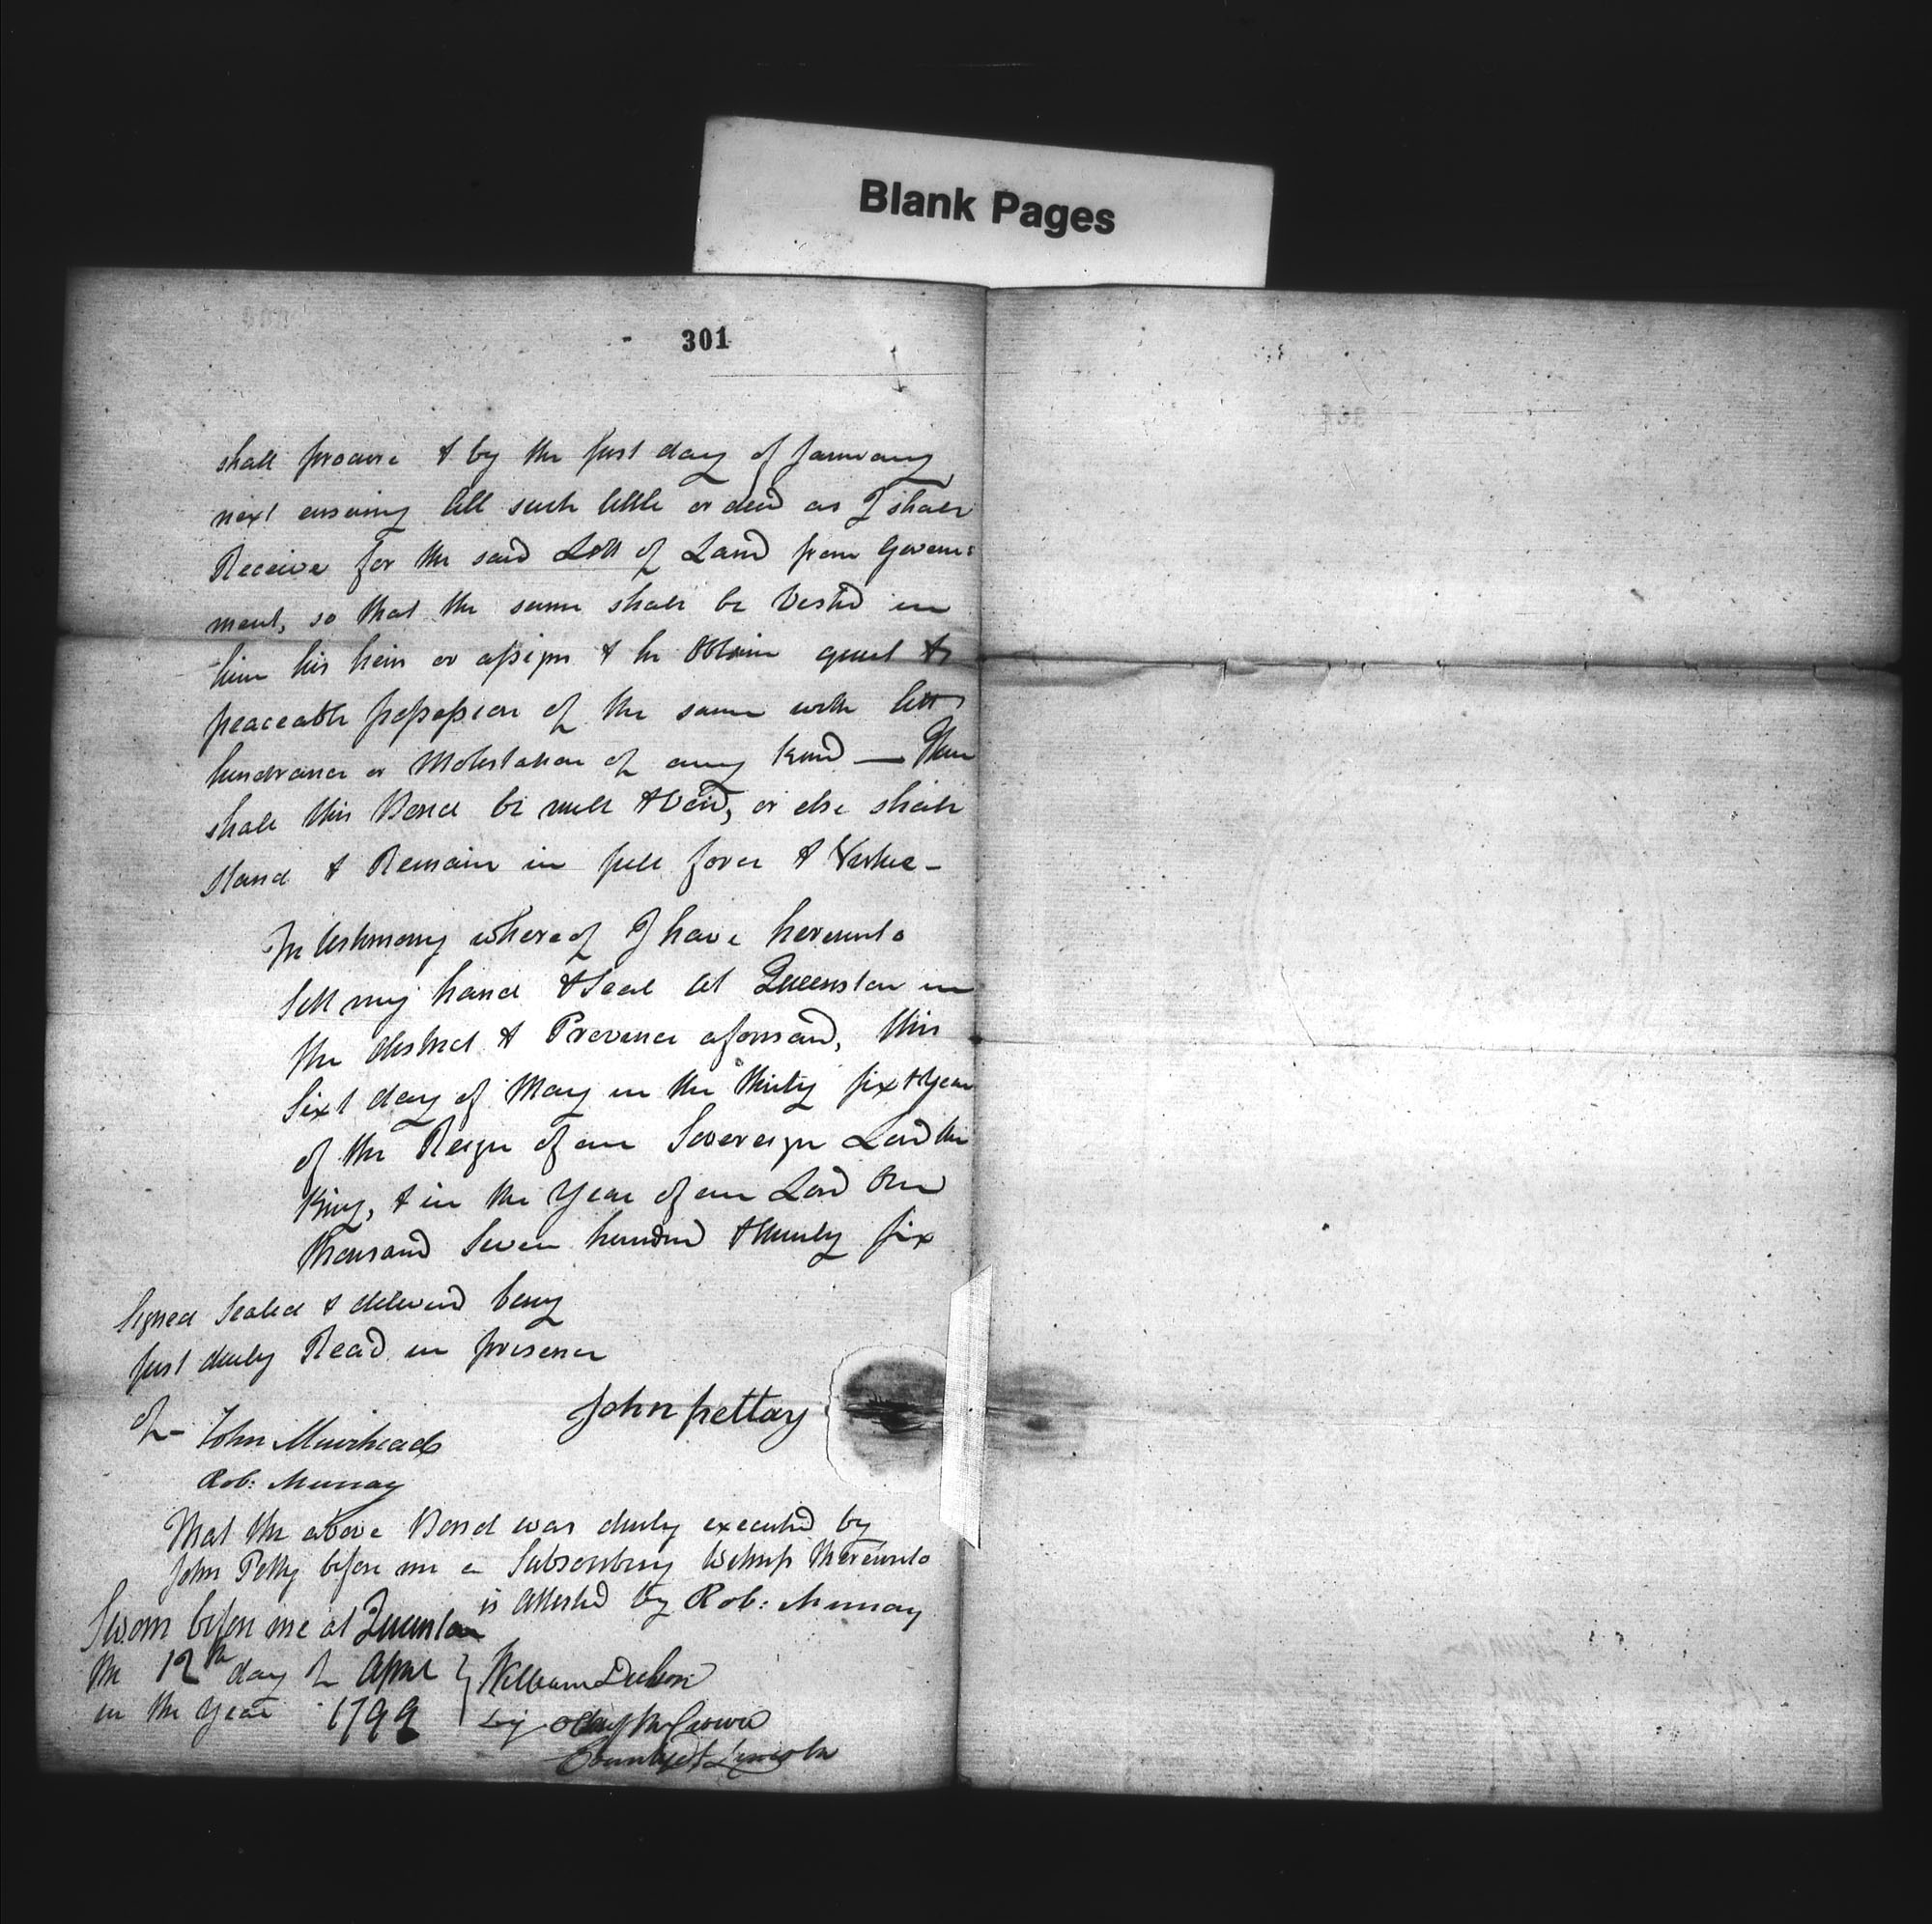 Blank Pages
301
shall procure & by the first day of January
next ensuing All such tittle or deed as I shall
Receive for the said Lott of Land from Govern=
ment, so that the same shall be Vested in
him his heirs or assigns & he Obtain quiet &
peaceable possession of the same with lett
hindrance or Molestation of any kind — Then
shall this Bond be null & Void, or else shall
stand & Remain in full force & Virtue -
In testimony whereof I have hereunto
Sett my hand & Seal at Queenston in
the district & Province aforesaid, this
Sixt day of May in the thirty sixth Year
of the Reign of our Sovereign Lord the
King, & in the Year of our Lord One
thousand Seven hundred & Ninety six
Signed Sealed & delivered being
first duely Read in presence
of - John Muirhead
John pettay
Rob: Murray
That the above Bond was duely executed by
John Petty before me a Subscribing Witness thereunto
is attested by Rob: Murray
Sworn before me at Queenston
the 12th day of April
in the Year 1799
William Dickson
County of Lincoln